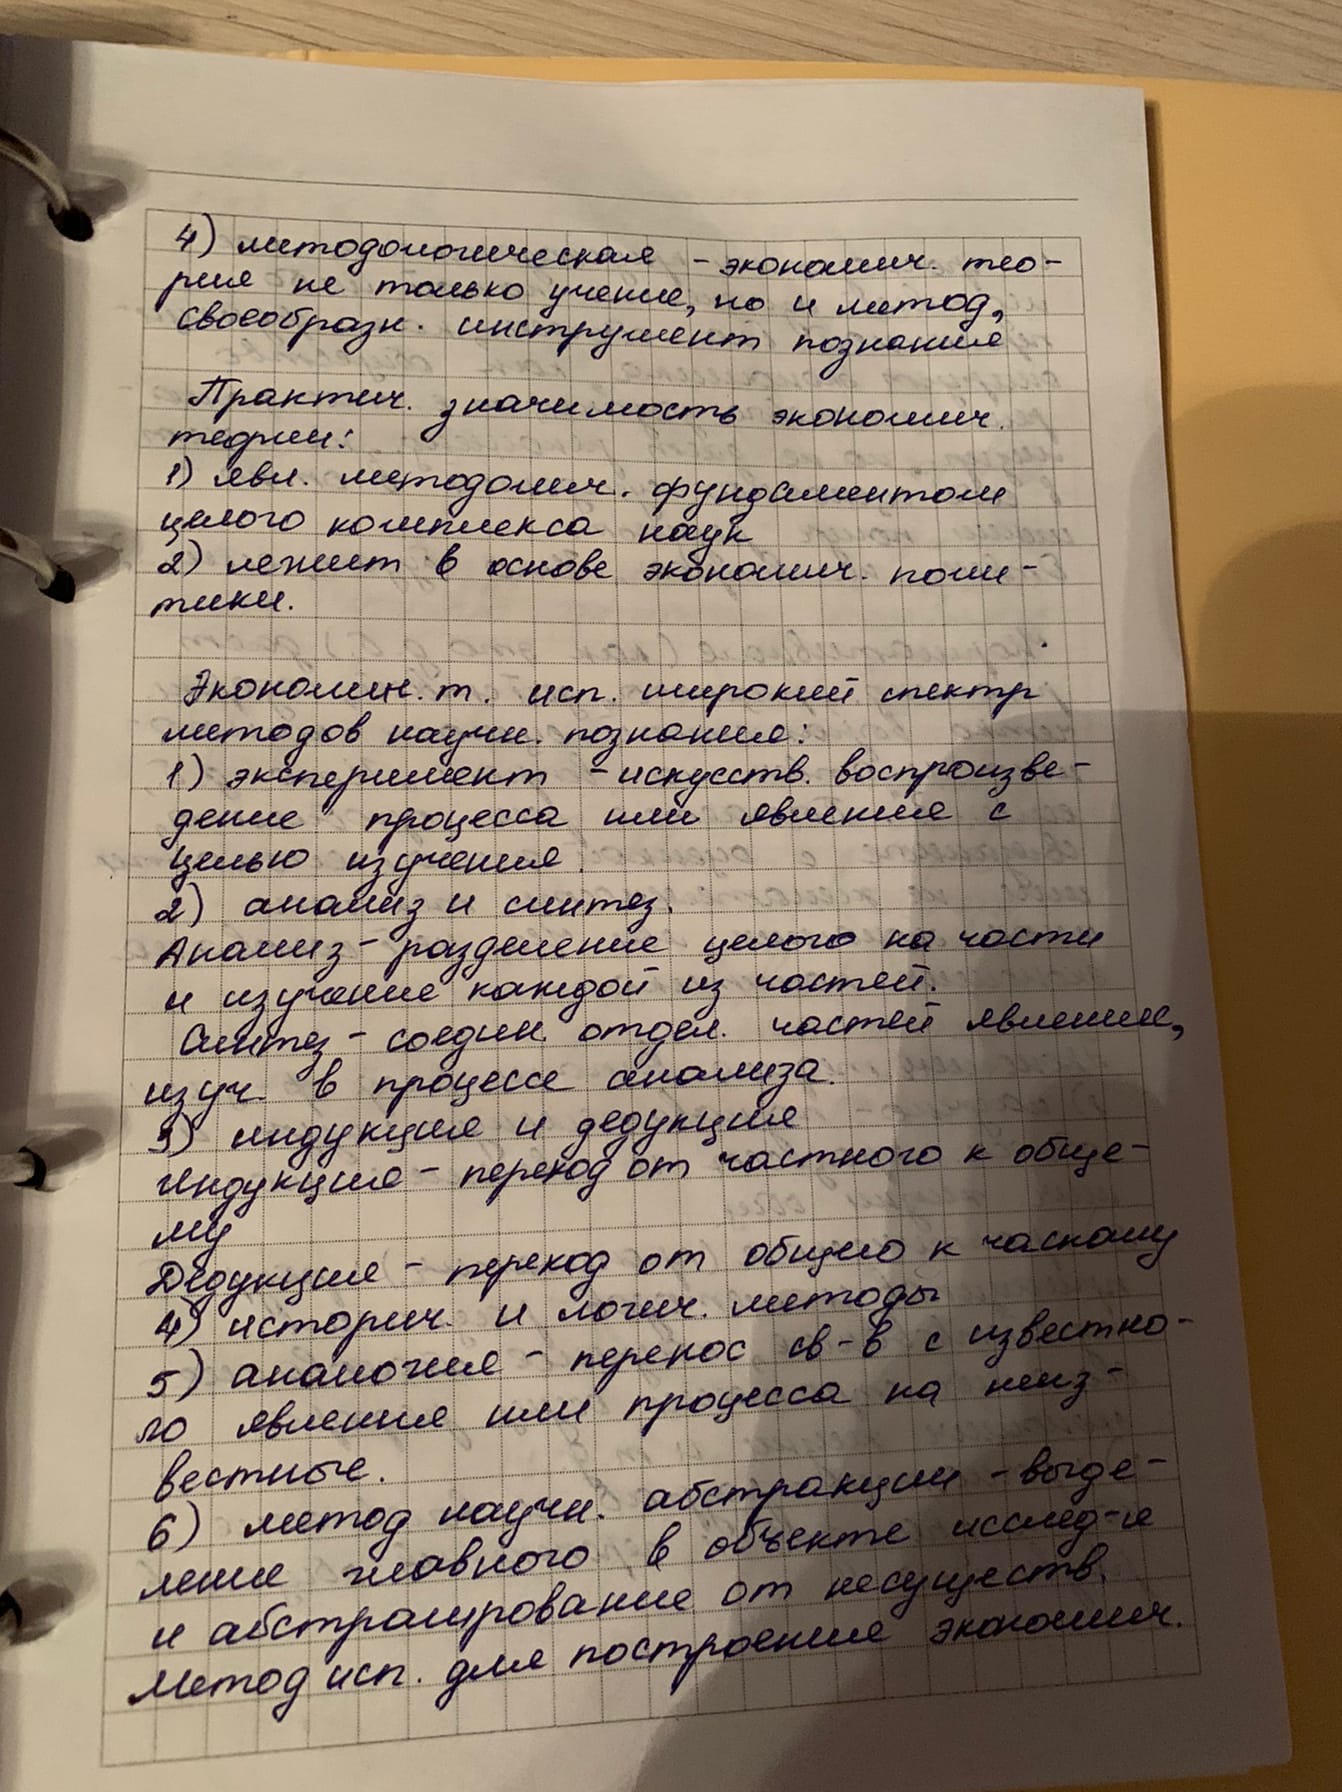 4) методологическая - экономич. тео-
рия не только учение, но и метод,
своеобразн. инструмент познания
Практич. значимость экономич.
теории:
1) явл. методолич. фундаментом
целого комплекса наук
2) лежит в основе экономич. поли-
тики.
Экономич. т. исп. широкий спектр
методов научн. познания:
1) эксперимент - искусств. воспроизве-
дение процесса или явления с
целью изучения.
2) анализ и синтез.
Анализ - разделение целого на части
и изучение каждой из частей.
Синтез - соедин. отдел. частей явления,
изуч. в процессе анализа.
3) индукция и дедукция
Индукция - переход от частного к обще-
му
Дедукция - переход от общего к часному
4) историч. и логич. методы
5) аналогия - перенос св-в с известно-
го явления или процесса на неиз-
вестные.
6) метод научн. абстракции - выде-
ление главного в объекте исслед-я
и абстрагирование от несуществ.
Метод исп. для построения экономич.